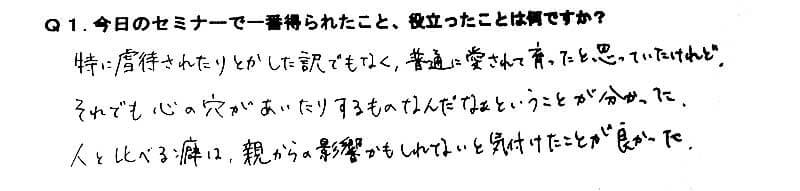 Q1.今日のセミナーで一番得られたこと、役立ったことは何ですか？
特に虐待されたりとかした訳でもなく、普通に愛されて育ったと思っていたけれど、
それでも心の穴があいたりするものなんだなぁということが分かった。
人と比べる癖は、親からの影響かもしれてないと気付けたことが良かった。